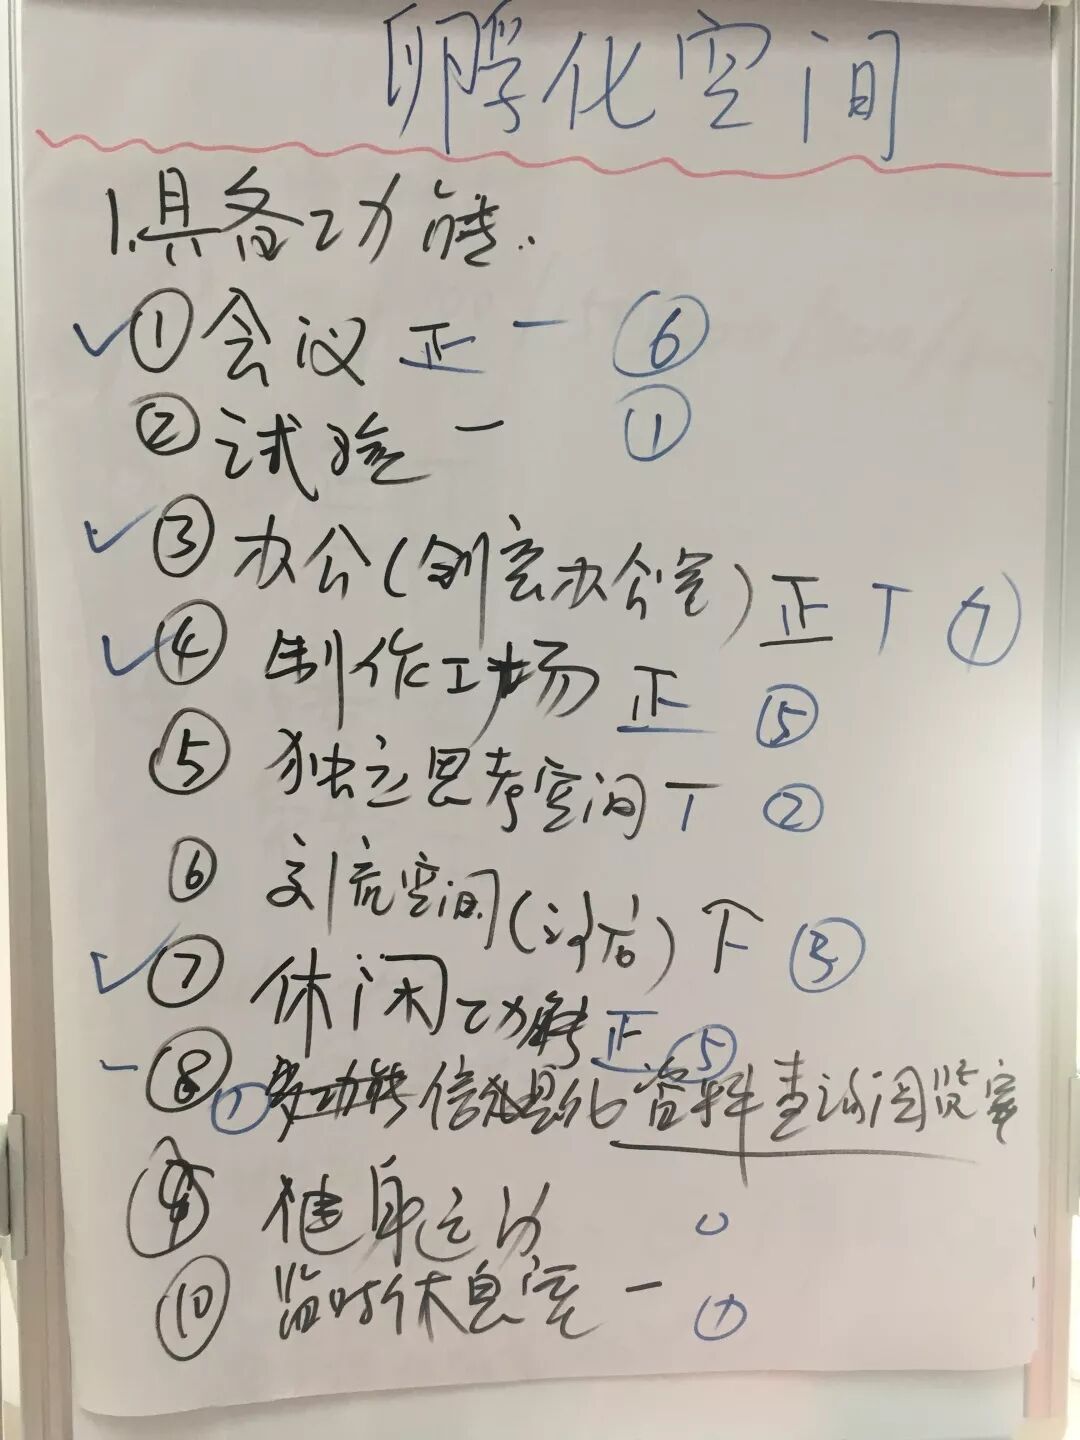 孵化空间
1.具备功能:
✓①会议 正一 ⑥
②试验 一 ①
✓③办公(创客办公室) 正丅 ⑦
✓④制作工场 正 ⑤
⑤独立思考空间 丅 ②
⑥交流空间(讨论) 下 ③
✓⑦休闲功能 正 ⑤
⑧多功能 信息化 资料查询阅览室 ①
⑨健身运动 0
⑩临时休息室 一 ①